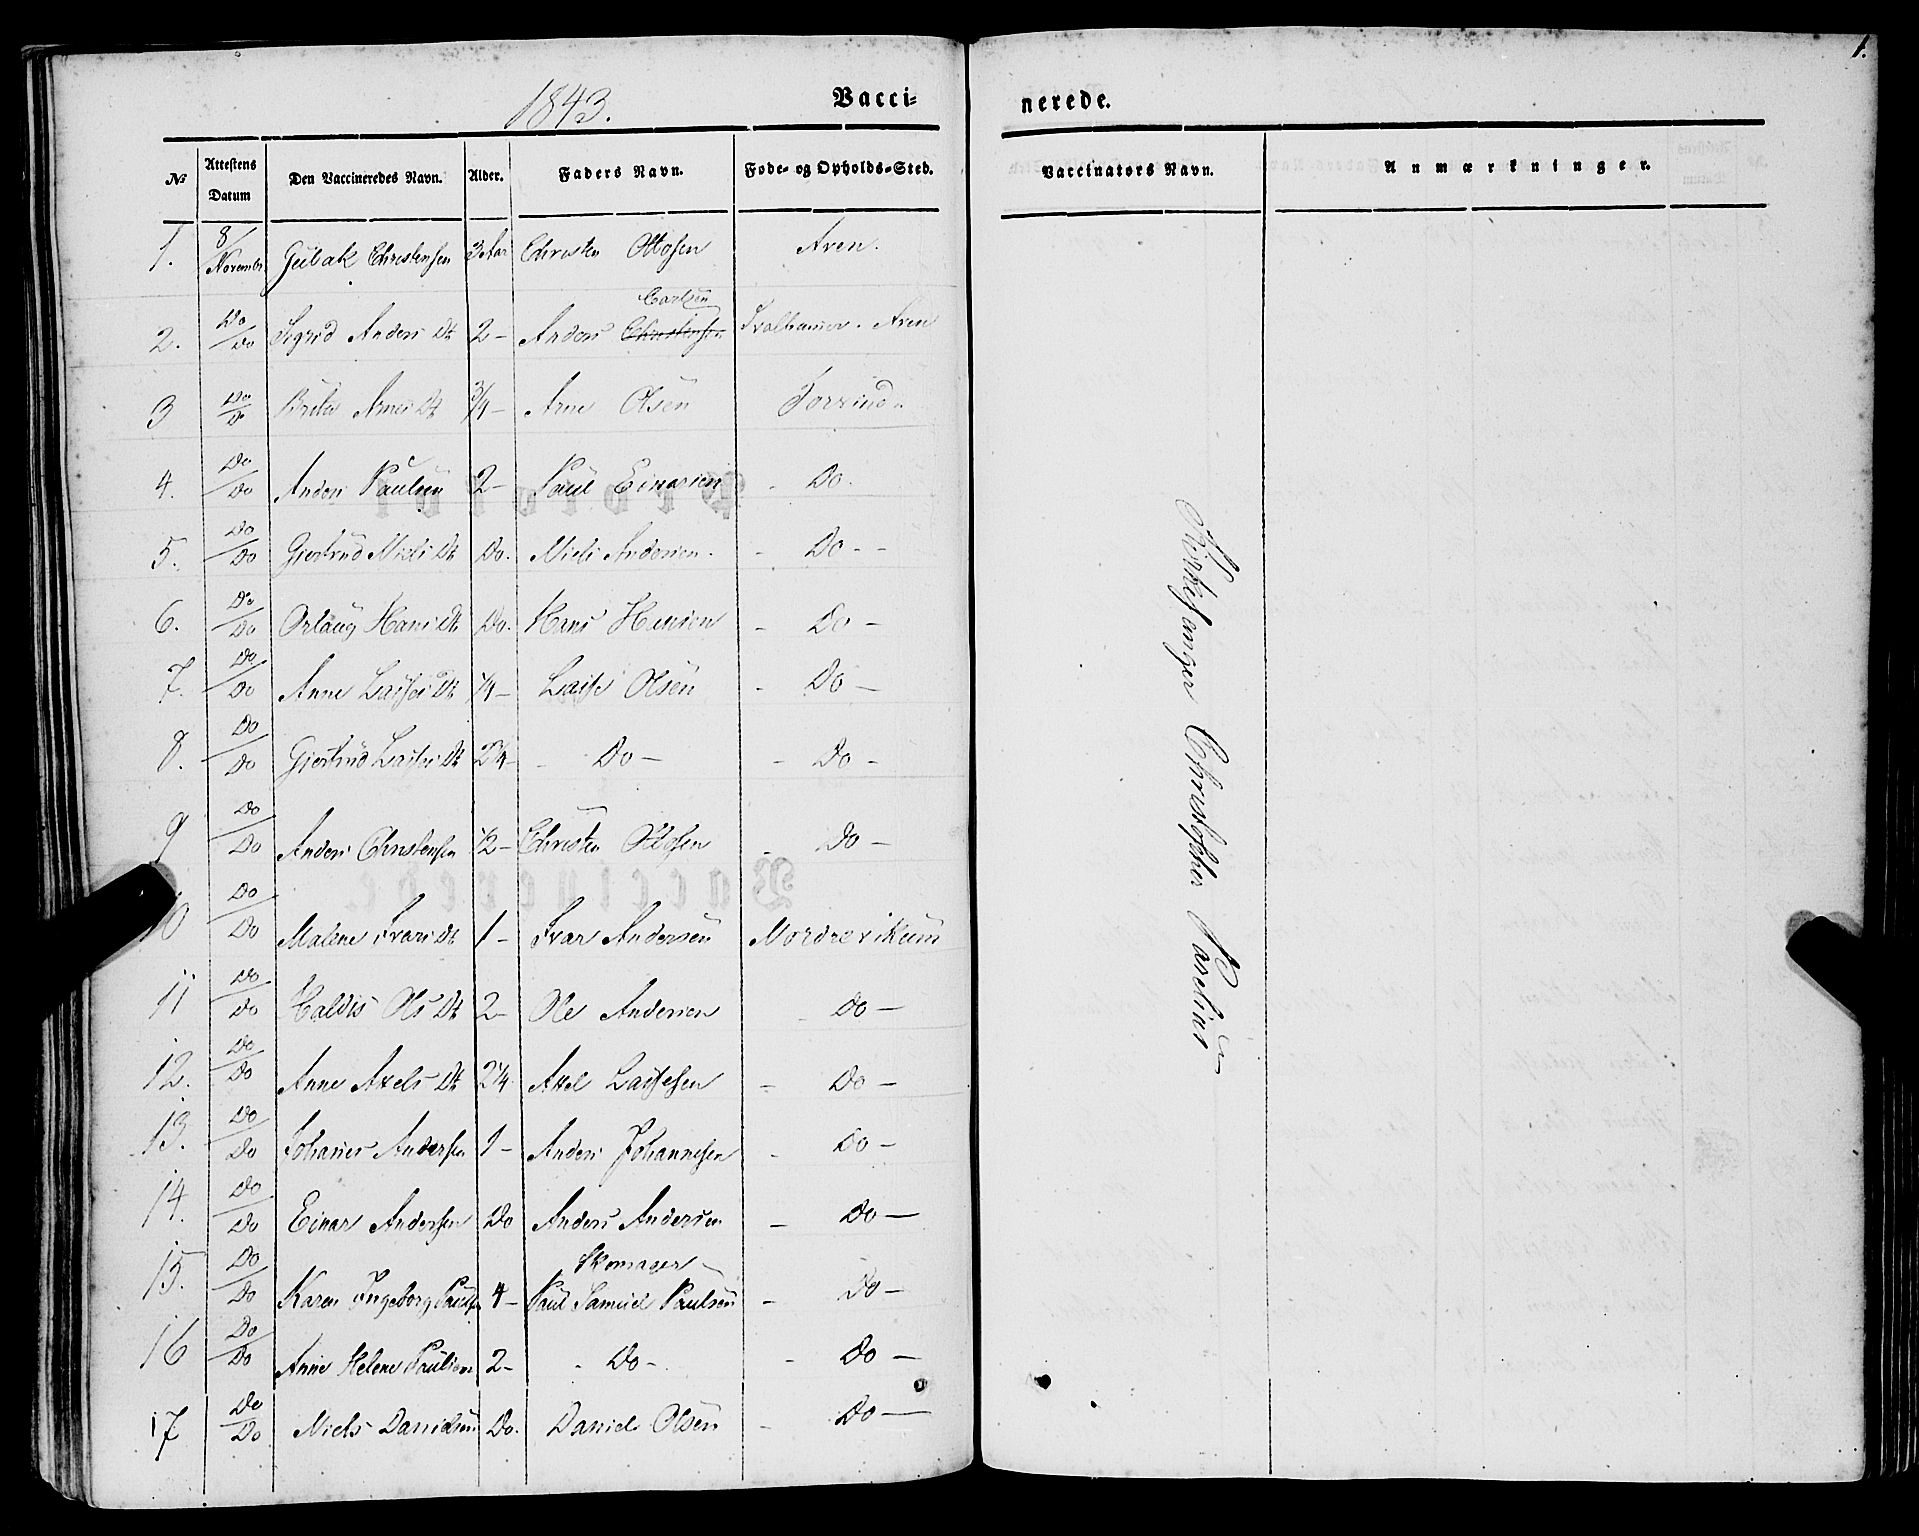 1.
1843.
Vacci- nerede.
No Attestens Datum Den Vaccineredes Navn. Alder. Faders Navn. Føde- og Opholds-Sted. Vaccinators Navn. Anmærkninger.
1. 8/Novembr Gulak Christensen 3 Aar Christen Ottosen Aren.
Carlsen
2. Do/Do Sigrid Anders Dt 2- Anders Christensen Aren
3 Do/Do Brita Arnes Dt 3/4- Arne Olsen
4. Do/Do Anders Paulsen 2- Paul Einarsen - Do.
5. Do/Do Gjertrud Niels Dt Do. Niels Andersen. - Do - -
6. Do/Do Orlaug Hans Dt Do. Hans Hansen - Do -
7. Do/Do Anne Lasses Dt 1/4- Lasse Olsen - Do -
8. Do/Do Gjertrud Lasses Dt 2 1/4- - Do - - Do -
9 Do/Do Anders Christensen 1/2- Christen Ottosen - Do -
10 Do/Do Malene Ivars Dt 1- Ivar Andersen Nordrevikum
11 Do/Do Haldis Ols Dt 2- Ole Andersen - Do -
12. Do/Do Anne Axels Dt 2 1/4 Axel Lassesen - Do -
13. Do/Do Johanes Andersen 1- Anders Johannesen - Do -
14. Do/Do Einar Andersen Do Anders Andersen - Do -
Skomager
15. Do/Do Karen Ingeborg Pauls 4- Paul Samuel Paulsen - Do -
16 Do/Do Anne Helene Paulsen 2- - Do - - Do -
17 Do/Do Niels Danielsen Do. Daniel Olsen - Do -
Kirkesanger Christopher